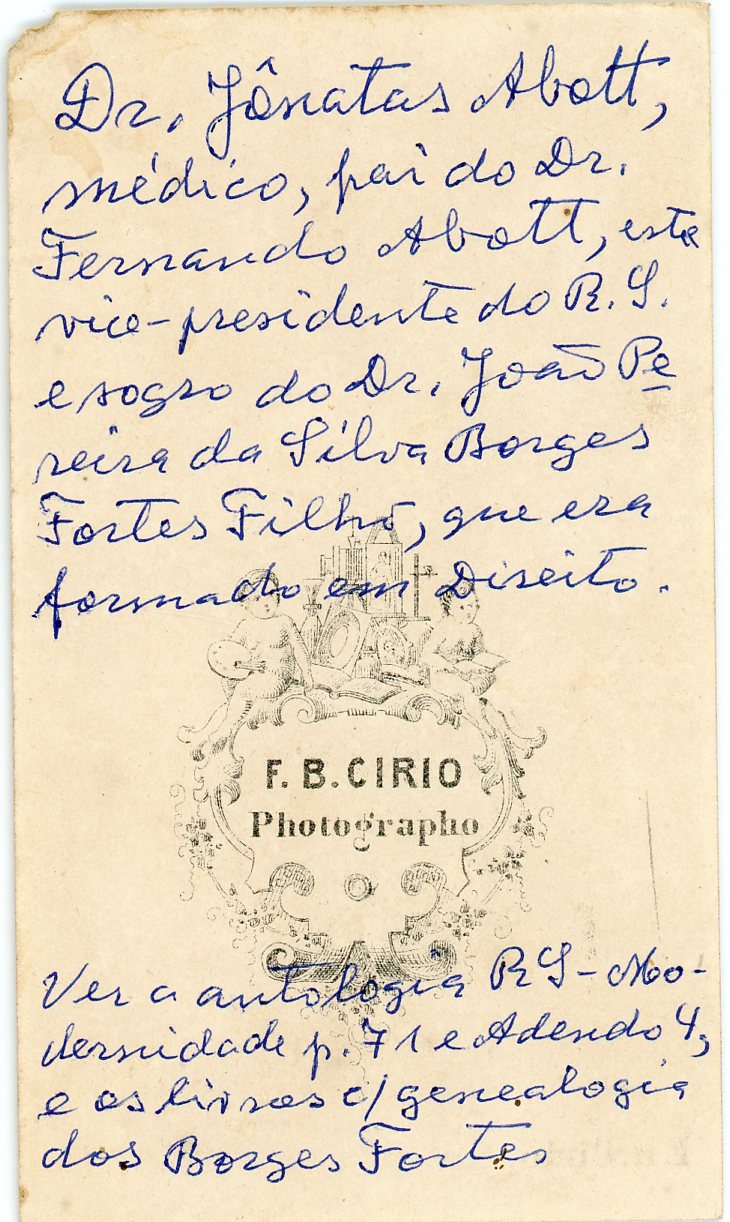 Dr. Jônatas Abott,
médico, pai do Dr.
Fernando Abott, este
vice-presidente do R.S.
e sogro do Dr. João Pe
reira da Silva Borges
Fortes Filho, que era
formado em Direito.
F. B. CIRIO
Photographo
Ver a antologia RS-Mo-
dernidade p. 71 e Adendo 4,
e os livros c/ genealogia
dos Borges Fortes